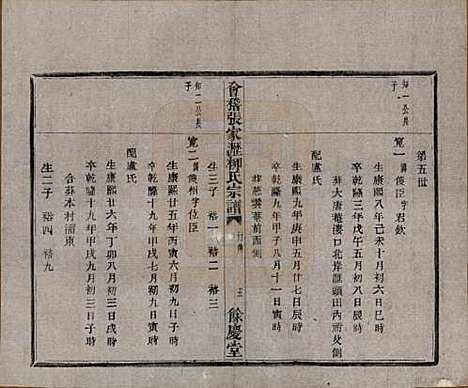 第五世
知一公長子
寬一 諱俊臣 字君欽
生康熙八年己未十月初六日巳時
卒康熙三年戊午五月初九日辰時
葬大唐菴漊口北岸
配盧氏
生康熙九年庚申五月廿七日辰時
卒乾隆九年甲子八月十一日寅時
葬慈雲菴前西側
生三子 裕一 裕二 裕三
會稽張家瀝柳氏宗譜
世系
三
餘慶堂
知二公長子
寬二 諱俊州 字位臣
生康熙廿五年丙寅六月初九日子時
卒乾隆十九年甲戌七月初三日寅時
配盧氏
生康熙廿六年丁卯八月初三日戌時
卒乾隆十九年甲戌九月初三日子時
合葬本村浦東
生二子 裕四 裕九